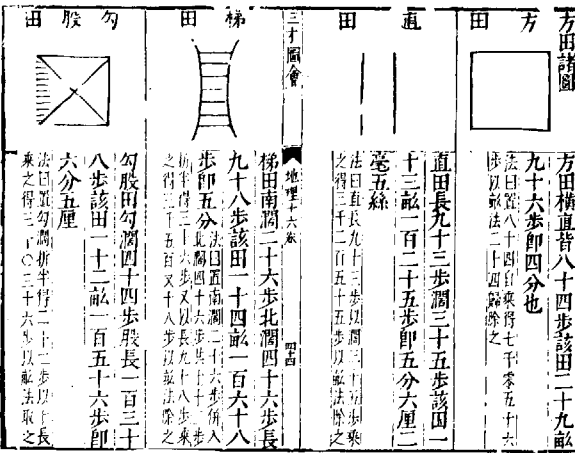 方田諸圖
方田
方田橫直皆八十四步該田二十九畝
九十六步卽四分也
法曰置八十四自乘得七千零五十六
步以畝法二十四歸除之
直田
直田長九十三步濶三十五步該田一
十三畝一百二十五步卽五分六厘二
毫五絲
法曰直長九十三步以濶三十五步乘
之得三千二百五十五步以畝法除之
三才圖會
地理十六卷
四十四
梯田
梯田南濶二十六步北濶四十六步長
九十八步該田一十四畝一百六十八
步卽五分
法曰置南濶二十六步併入
北濶四十六步共七十二步
折半得三十六步又以長九十八步乘
之得三千五百又十八步以畝法除之
勾股田
勾股田勾濶四十四步股長一百三十
八步該田一十二畝一百五十六步卽
六分五厘
法曰置勾濶折半得二十二步以股長
乘之得三千〇三十六步以畝法取之